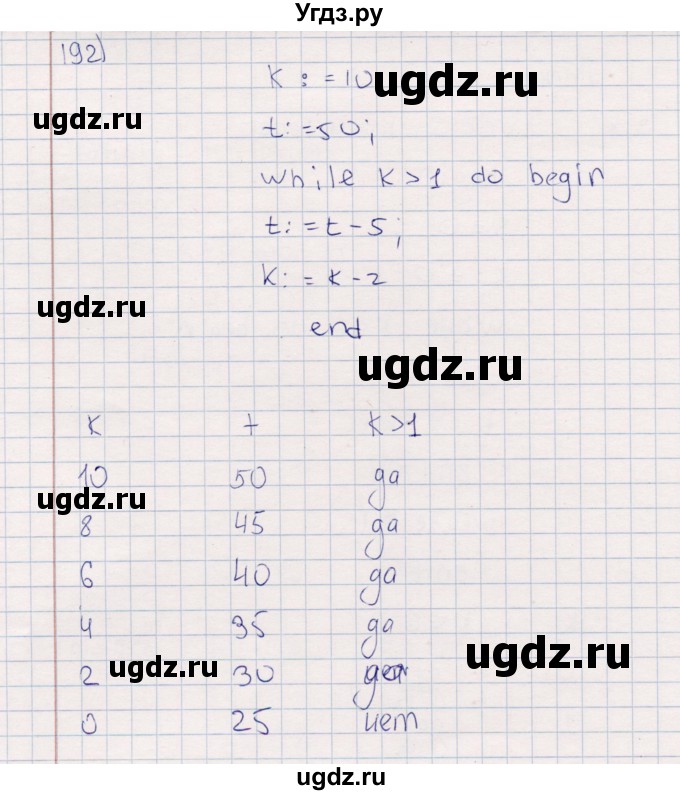 Угдз.ру
192)
k:=10
ugdz.ru
ugdz.ru
t:=50;
while k>1 do begin
t:=t-5;
k:=k-2
ugdz.ru
end
ugdz.ru
k t k>1
10 50 да
ugdz.ru
8 45 да
6 40 да
4 35 да
ugdz.ru
ugdz.ru
2 30 да
0 25 нет
ugdz.ru